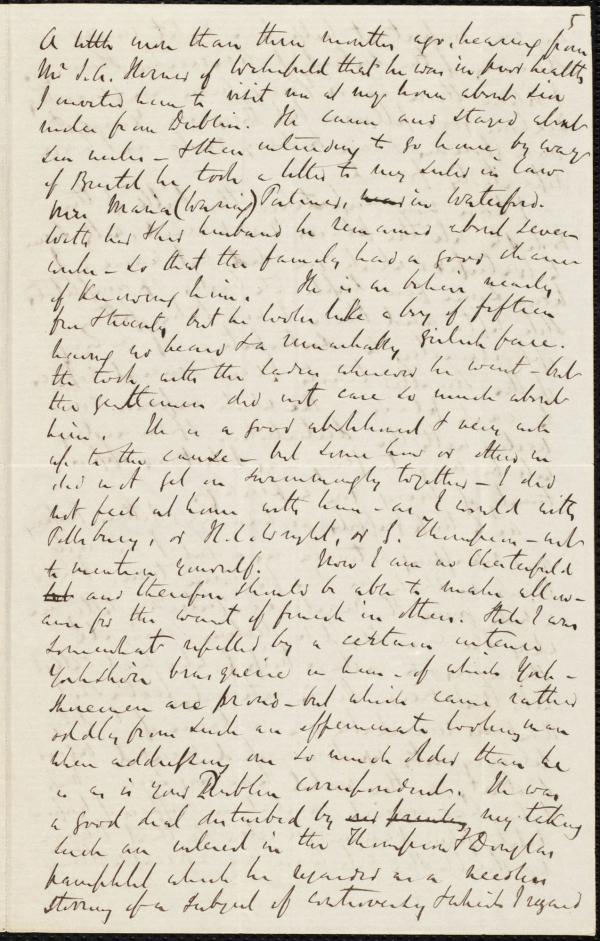 5
A little more than three months ago, hearing from
Mr J.A. Horner of Wakefield that he was in poor health
I invited him to visit me at my house about six
miles from Dublin. He came and stayed about
six weeks – & then intending to go home by way
of Bristol he took a letter to my sister in law
Mrs Maria (Waring) Palmer, in Waterford.
With her & her husband he remained about seven
weeks – so that the family had a good chance
of knowing him. He is I believe nearly
five & twenty but he looks like a boy of fifteen
having no beard & a remarkably girlish face.
He took with the ladies wherever he went – but
the gentlemen did not care so much about
him. He is a good abolitionist & very well
up to the cause – but some how or other we
did not get on swimmingly together – I did
not feel at home with him – as I would with
Pillsbury, or H.C. Wright, or G. Thompson – not
to mention yourself. Now I am no Chesterfield
but and therefore should be able to make allow-
ance for the want of finish in others. Still I was
somewhat repelled by a certain intense
Yorkshire brusquerie in him – of which York-
shiremen are proud – but which came rather
oddly from such an effeminate looking man
when addressing one so much older than he
is as is your Dublin correspondent. He was
a good deal disturbed by my taking
such an interest in the Thompson & Douglas
pamphlet which he regarded as a needless
stirring of a subject of controversy & which I regard